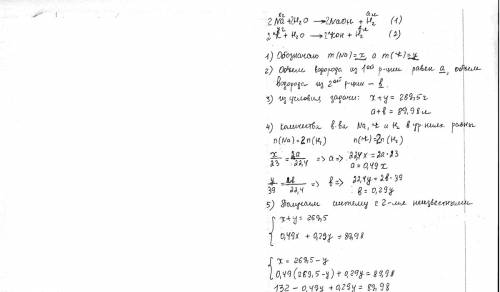 x г a л
2Na + 2H₂O → 2NaOH + H₂ (1)
y г в л
2K + 2H₂O → 2KOH + H₂ (2)
1) Обозначаю m(Na)=x, а m(K)=y
2) Объем водорода из 1ой р-ции равен a, объем
водорода из 2ой р-ции – в.
3) из условия задачи: x+y = 269,5г
a+в = 89,98 л
4) количества в-ва Na, K и H₂ в ур-ниях равны
n(Na)=2n(H₂) n(K)=2n(H₂)
x/23 = 2a/22,4 => a => 22,4x = 2a·23
a = 0,49x
y/39 = 2в/22,4 => в => 22,4y = 2в·39
в = 0,29y
5) систему с 2-мя неизвестными
{ x+y = 269,5
0,49x + 0,29y = 89,98
{ x = 269,5 – y
0,49(269,5–y) + 0,29y = 89,98
132 – 0,49y + 0,29y = 89,98